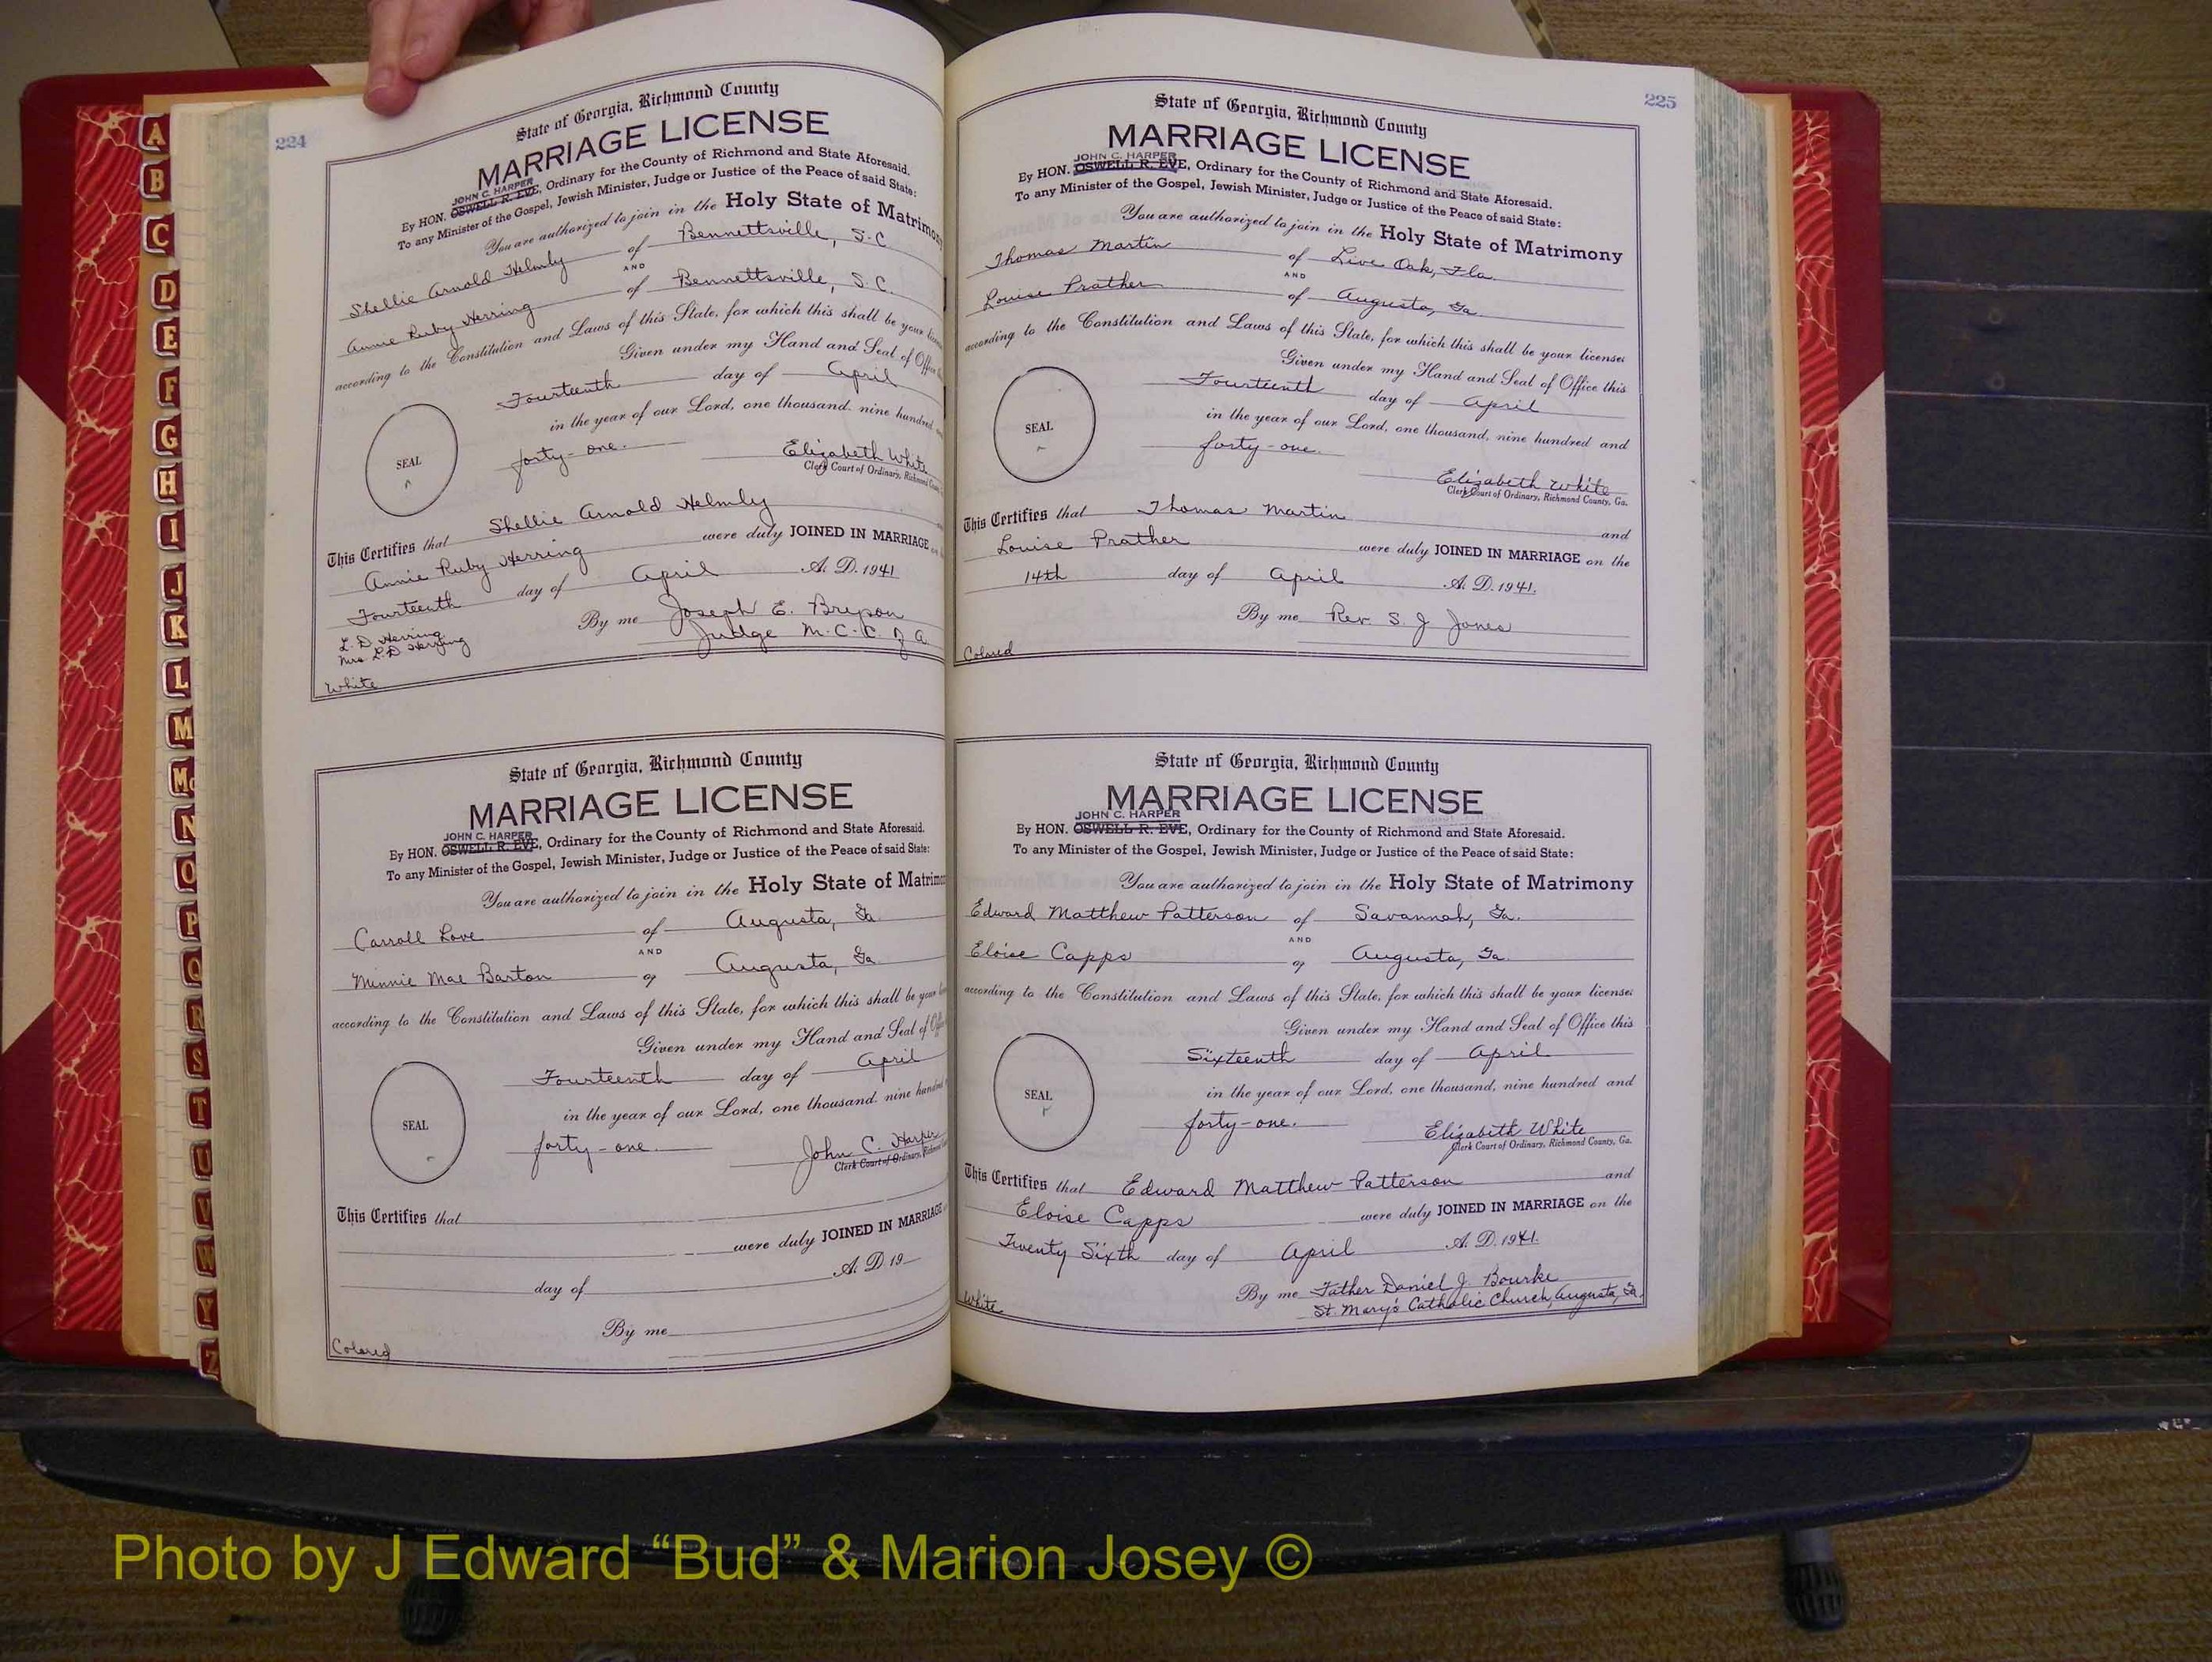 A
B
C
D
E
F
G
H
I
J
K
L
M
Mc
N
O
P
Q
R
S
T
U
V
W
Y
Z
224
State of Georgia, Richmond County
MARRIAGE LICENSE
JOHN C. HARPER
By HON. OSWELL R. EVE, Ordinary for the County of Richmond and State Aforesaid.
To any Minister of the Gospel, Jewish Minister, Judge or Justice of the Peace of said State:
You are authorized to join in the Holy State of Matrimony
Shellie Arnold Helmly of Bennettsville, S.C.
AND
Annie Ruby Herring of Bennettsville, S.C.
according to the Constitution and Laws of this State, for which this shall be your
Given under my Hand and Seal of Office
Fourteenth day of April
in the year of our Lord, one thousand, nine hundred
forty-one.
SEAL
Elizabeth White
Clerk Court of Ordinary, Richmond
This Certifies that Shellie Arnold Helmly
Annie Ruby Herring were duly JOINED IN MARRIAGE
Fourteenth day of April A. D. 1941
By me Joseph E. Bryson
Judge M.C.C. of A.
L. D. Herring
Mrs L.D. Herring
White
State of Georgia, Richmond County
MARRIAGE LICENSE
JOHN C. HARPER
By HON. OSWELL R. EVE, Ordinary for the County of Richmond and State Aforesaid.
To any Minister of the Gospel, Jewish Minister, Judge or Justice of the Peace of said State:
You are authorized to join in the Holy State of Matrimo
Carroll Love of Augusta, Ga.
AND
Minnie Mae Barton of Augusta, Ga.
according to the Constitution and Laws of this State, for which this shall be your
Given under my Hand and Seal of
Fourteenth day of April
in the year of our Lord, one thousand, nine hundred
forty-one.
SEAL
John C. Harper
Clerk Court of Ordinary, Richmond
This Certifies that
were duly JOINED IN MARRIAGE
day of A. D. 19
By me
Colored
225
State of Georgia, Richmond County
MARRIAGE LICENSE
JOHN C. HARPER
By HON. OSWELL R. EVE, Ordinary for the County of Richmond and State Aforesaid.
To any Minister of the Gospel, Jewish Minister, Judge or Justice of the Peace of said State:
You are authorized to join in the Holy State of Matrimony
Thomas Martin of Live Oak, Fla.
AND
Louise Prather of Augusta, Ga.
according to the Constitution and Laws of this State, for which this shall be your license:
Given under my Hand and Seal of Office this
Fourteenth day of April
in the year of our Lord, one thousand, nine hundred and
forty-one.
SEAL
Elizabeth White
Clerk Court of Ordinary, Richmond County, Ga.
This Certifies that Thomas Martin and
Louise Prather were duly JOINED IN MARRIAGE on the
14th day of April A. D. 1941.
By me Rev. S. J. Jones
Colored
State of Georgia, Richmond County
MARRIAGE LICENSE
JOHN C. HARPER
By HON. OSWELL R. EVE, Ordinary for the County of Richmond and State Aforesaid.
To any Minister of the Gospel, Jewish Minister, Judge or Justice of the Peace of said State:
You are authorized to join in the Holy State of Matrimony
Edward Matthew Patterson of Savannah, Ga.
AND
Eloise Capps of Augusta, Ga.
according to the Constitution and Laws of this State, for which this shall be your license:
Given under my Hand and Seal of Office this
Sixteenth day of April
in the year of our Lord, one thousand, nine hundred and
forty-one.
SEAL
Elizabeth White
Clerk Court of Ordinary, Richmond County, Ga.
This Certifies that Edward Matthew Patterson and
Eloise Capps were duly JOINED IN MARRIAGE on the
Twenty Sixth day of April A. D. 1941.
By me Father Daniel J. Bourke
St. Mary's Catholic Church, Augusta, Ga.
White
Photo by J Edward “Bud” & Marion Josey ©